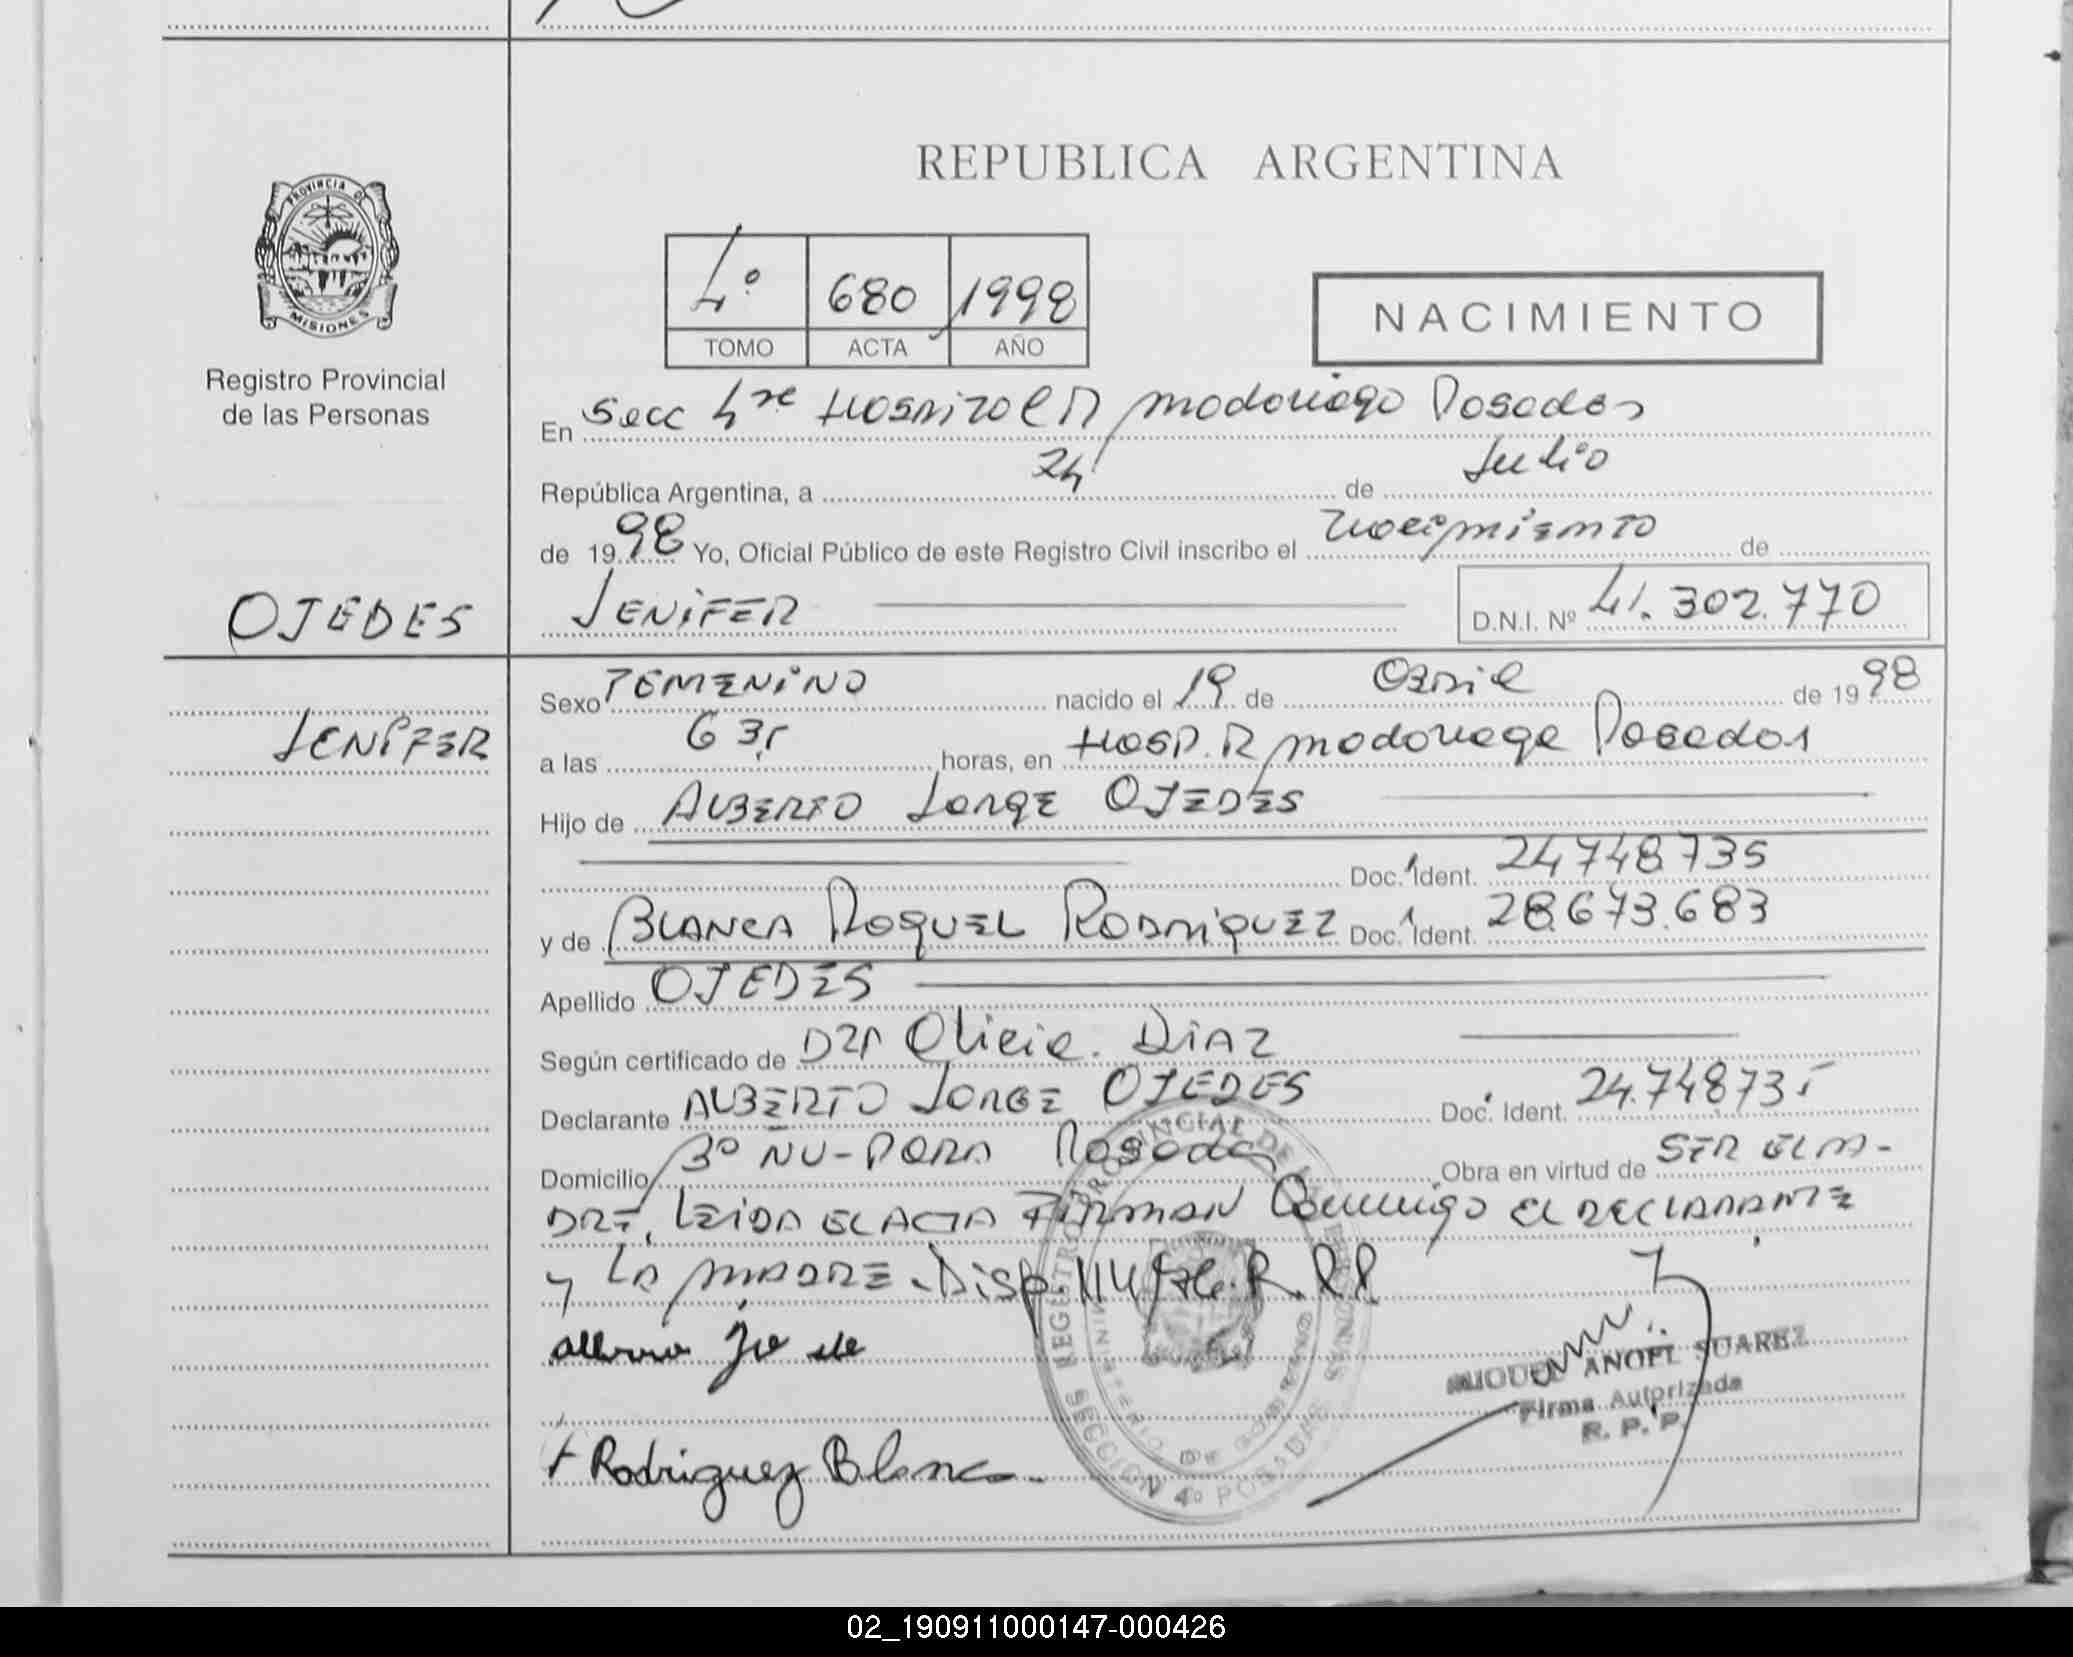 REPUBLICA ARGENTINA
PROVINCIA DE
MISIONES
Registro Provincial
de las Personas
4º 680 1998
TOMO ACTA AÑO
NACIMIENTO
En Secc 4ta Hospital R Madariaga Posadas
República Argentina, a 24 de Julio
de 1998 Yo, Oficial Público de este Registro Civil inscribo el nacimiento de
OJEDES
JENIFER
D.N.I. Nº 41.302.770
JENIFER
Sexo FEMENINO nacido el 19 de Abril de 1998
a las 6 35 horas, en Hosp. R Madariaga Posadas
Hijo de ALBERTO JORGE OJEDES
Doc. Ident. 24748735
y de BLANCA RAQUEL RODRIGUEZ Doc. Ident. 28.673.683
Apellido OJEDES
Según certificado de Alicia DIAZ
Declarante ALBERTO JORGE OJEDES Doc. Ident. 24.748735
Domicilio ÑU-PORA Posadas Obra en virtud de SER EL PA-
DRE, LEIDA EL ACTA FIRMAN Conmigo EL DECLARANTE
y LA MADRE. Disp. 114/ R.P.P.
MIGUEL ANGEL SUAREZ
Firma Autorizada
R. P. P.
Rodriguez Blanca
REGISTRO PROVINCIAL DE LAS PERSONAS
MINISTERIO DE GOBIERNO
SECCION 4º POSADAS
02_190911000147-000426